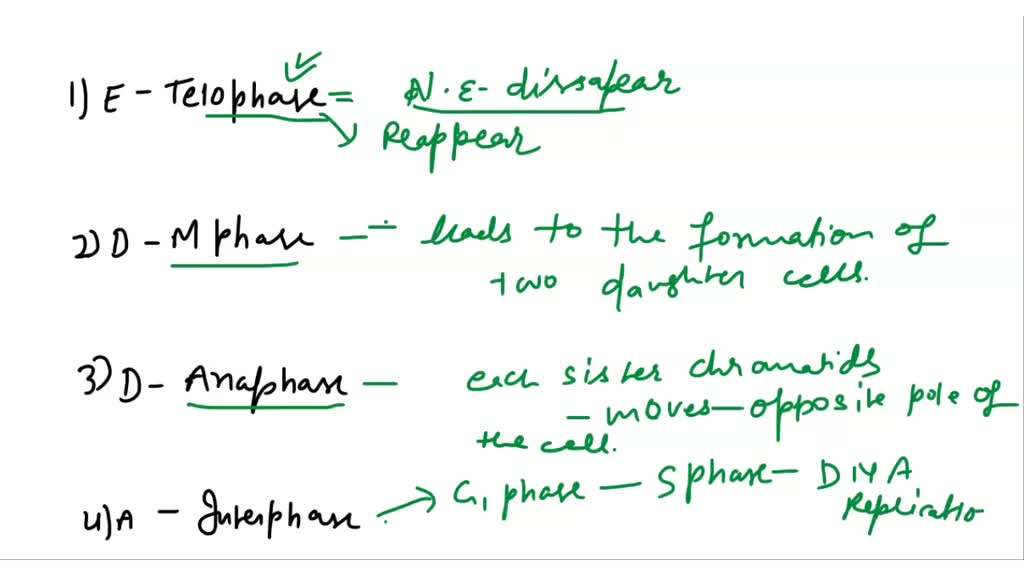 1) E - Telophase = N.E- dissapear
Reappear
2) D - M phase - leads to the formation of
two daughter cells.
3) D - Anaphase - each sister chromatids
- moves - opposite pole of
the cell.
4) A - Interphase → G1 phase - S phase - DNA
Replicatio